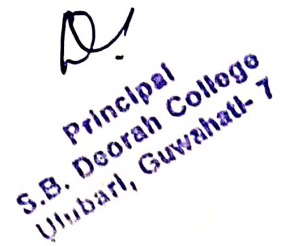 Principal
S.B. Deorah College
Ulubari, Guwahati- 7